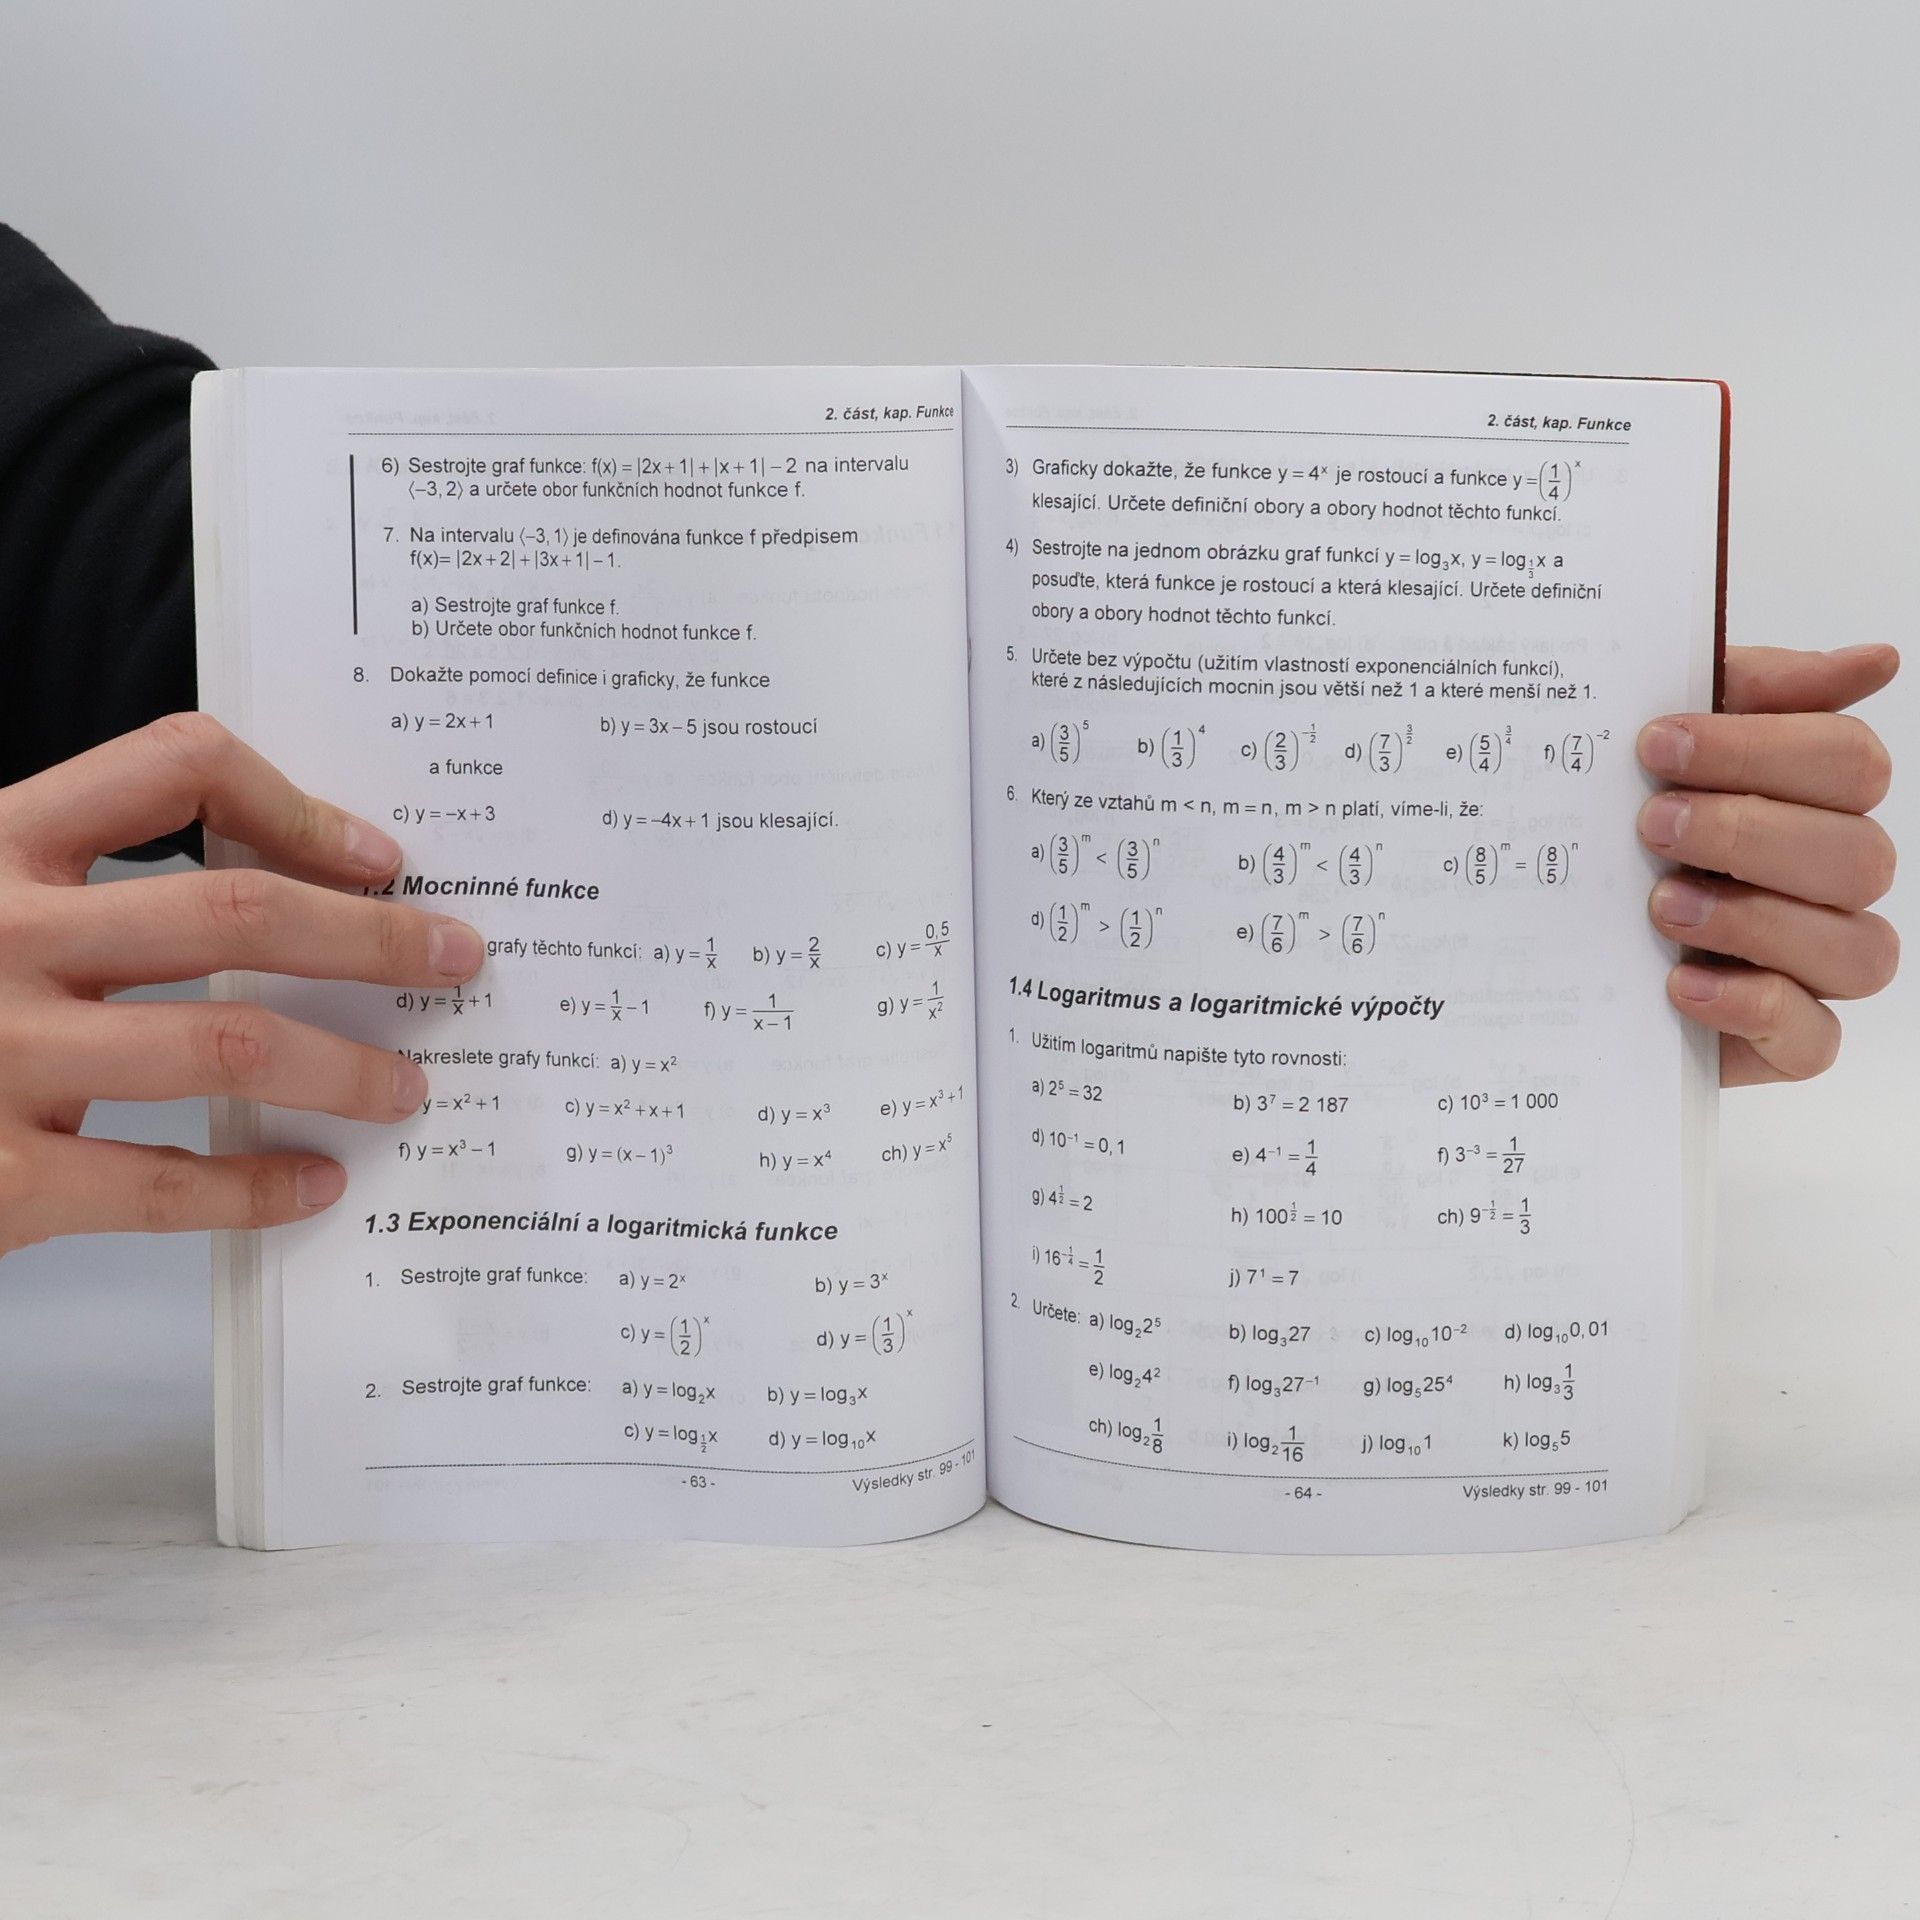 2. část, kap. Funkce
6) Sestrojte graf funkce: f(x) = |2x + 1| + |x + 1| – 2 na intervalu
⟨–3, 2⟩ a určete obor funkčních hodnot funkce f.
7. Na intervalu ⟨–3, 1⟩ je definována funkce f předpisem
f(x)= |2x + 2| + |3x + 1| – 1.
a) Sestrojte graf funkce f.
b) Určete obor funkčních hodnot funkce f.
8. Dokažte pomocí definice i graficky, že funkce
a) y = 2x + 1 b) y = 3x – 5 jsou rostoucí
a funkce
c) y = –x + 3 d) y = –4x + 1 jsou klesající.
1.2 Mocninné funkce
grafy těchto funkcí: a) y = 1/x b) y = 2/x c) y = 0,5/x
d) y = 1/x + 1 e) y = 1/x – 1 f) y = 1/(x – 1) g) y = 1/x²
Nakreslete grafy funkcí: a) y = x²
y = x² + 1 c) y = x² + x + 1 d) y = x³ e) y = x³ + 1
f) y = x³ – 1 g) y = (x – 1)³ h) y = x⁴ ch) y = x⁵
1.3 Exponenciální a logaritmická funkce
1. Sestrojte graf funkce: a) y = 2ˣ b) y = 3ˣ
c) y = (1/2)ˣ d) y = (1/3)ˣ
2. Sestrojte graf funkce: a) y = log₂x b) y = log₃x
c) y = log_(1/2) x d) y = log₁₀x
- 63 - Výsledky str. 99 - 101
2. část, kap. Funkce
3) Graficky dokažte, že funkce y = 4ˣ je rostoucí a funkce y = (1/4)ˣ
klesající. Určete definiční obory a obory hodnot těchto funkcí.
4) Sestrojte na jednom obrázku graf funkcí y = log₃x, y = log_(1/3) x a
posuďte, která funkce je rostoucí a která klesající. Určete definiční
obory a obory hodnot těchto funkcí.
5. Určete bez výpočtu (užitím vlastností exponenciálních funkcí),
které z následujících mocnin jsou větší než 1 a které menší než 1.
a) (3/5)⁵ b) (1/3)⁴ c) (2/3)^(–1/2) d) (7/3)^(3/2) e) (5/4)^(3/4) f) (7/4)⁻²
6. Který ze vztahů m < n, m = n, m > n platí, víme-li, že:
a) (3/5)ᵐ < (3/5)ⁿ b) (4/3)ᵐ < (4/3)ⁿ c) (8/5)ᵐ = (8/5)ⁿ
d) (1/2)ᵐ > (1/2)ⁿ e) (7/6)ᵐ > (7/6)ⁿ
1.4 Logaritmus a logaritmické výpočty
1. Užitím logaritmů napište tyto rovnosti:
a) 2⁵ = 32 b) 3⁷ = 2 187 c) 10³ = 1 000
d) 10⁻¹ = 0, 1 e) 4⁻¹ = 1/4 f) 3⁻³ = 1/27
g) 4^(1/2) = 2 h) 100^(1/2) = 10 ch) 9^(–1/2) = 1/3
i) 16^(–1/4) = 1/2 j) 7¹ = 7
2. Určete: a) log₂2⁵ b) log₃27 c) log₁₀10⁻² d) log₁₀0, 01
e) log₂4² f) log₃27⁻¹ g) log₅25⁴ h) log₃ 1/3
ch) log₂ 1/8 i) log₂ 1/16 j) log₁₀1 k) log₅5
- 64 - Výsledky str. 99 - 101